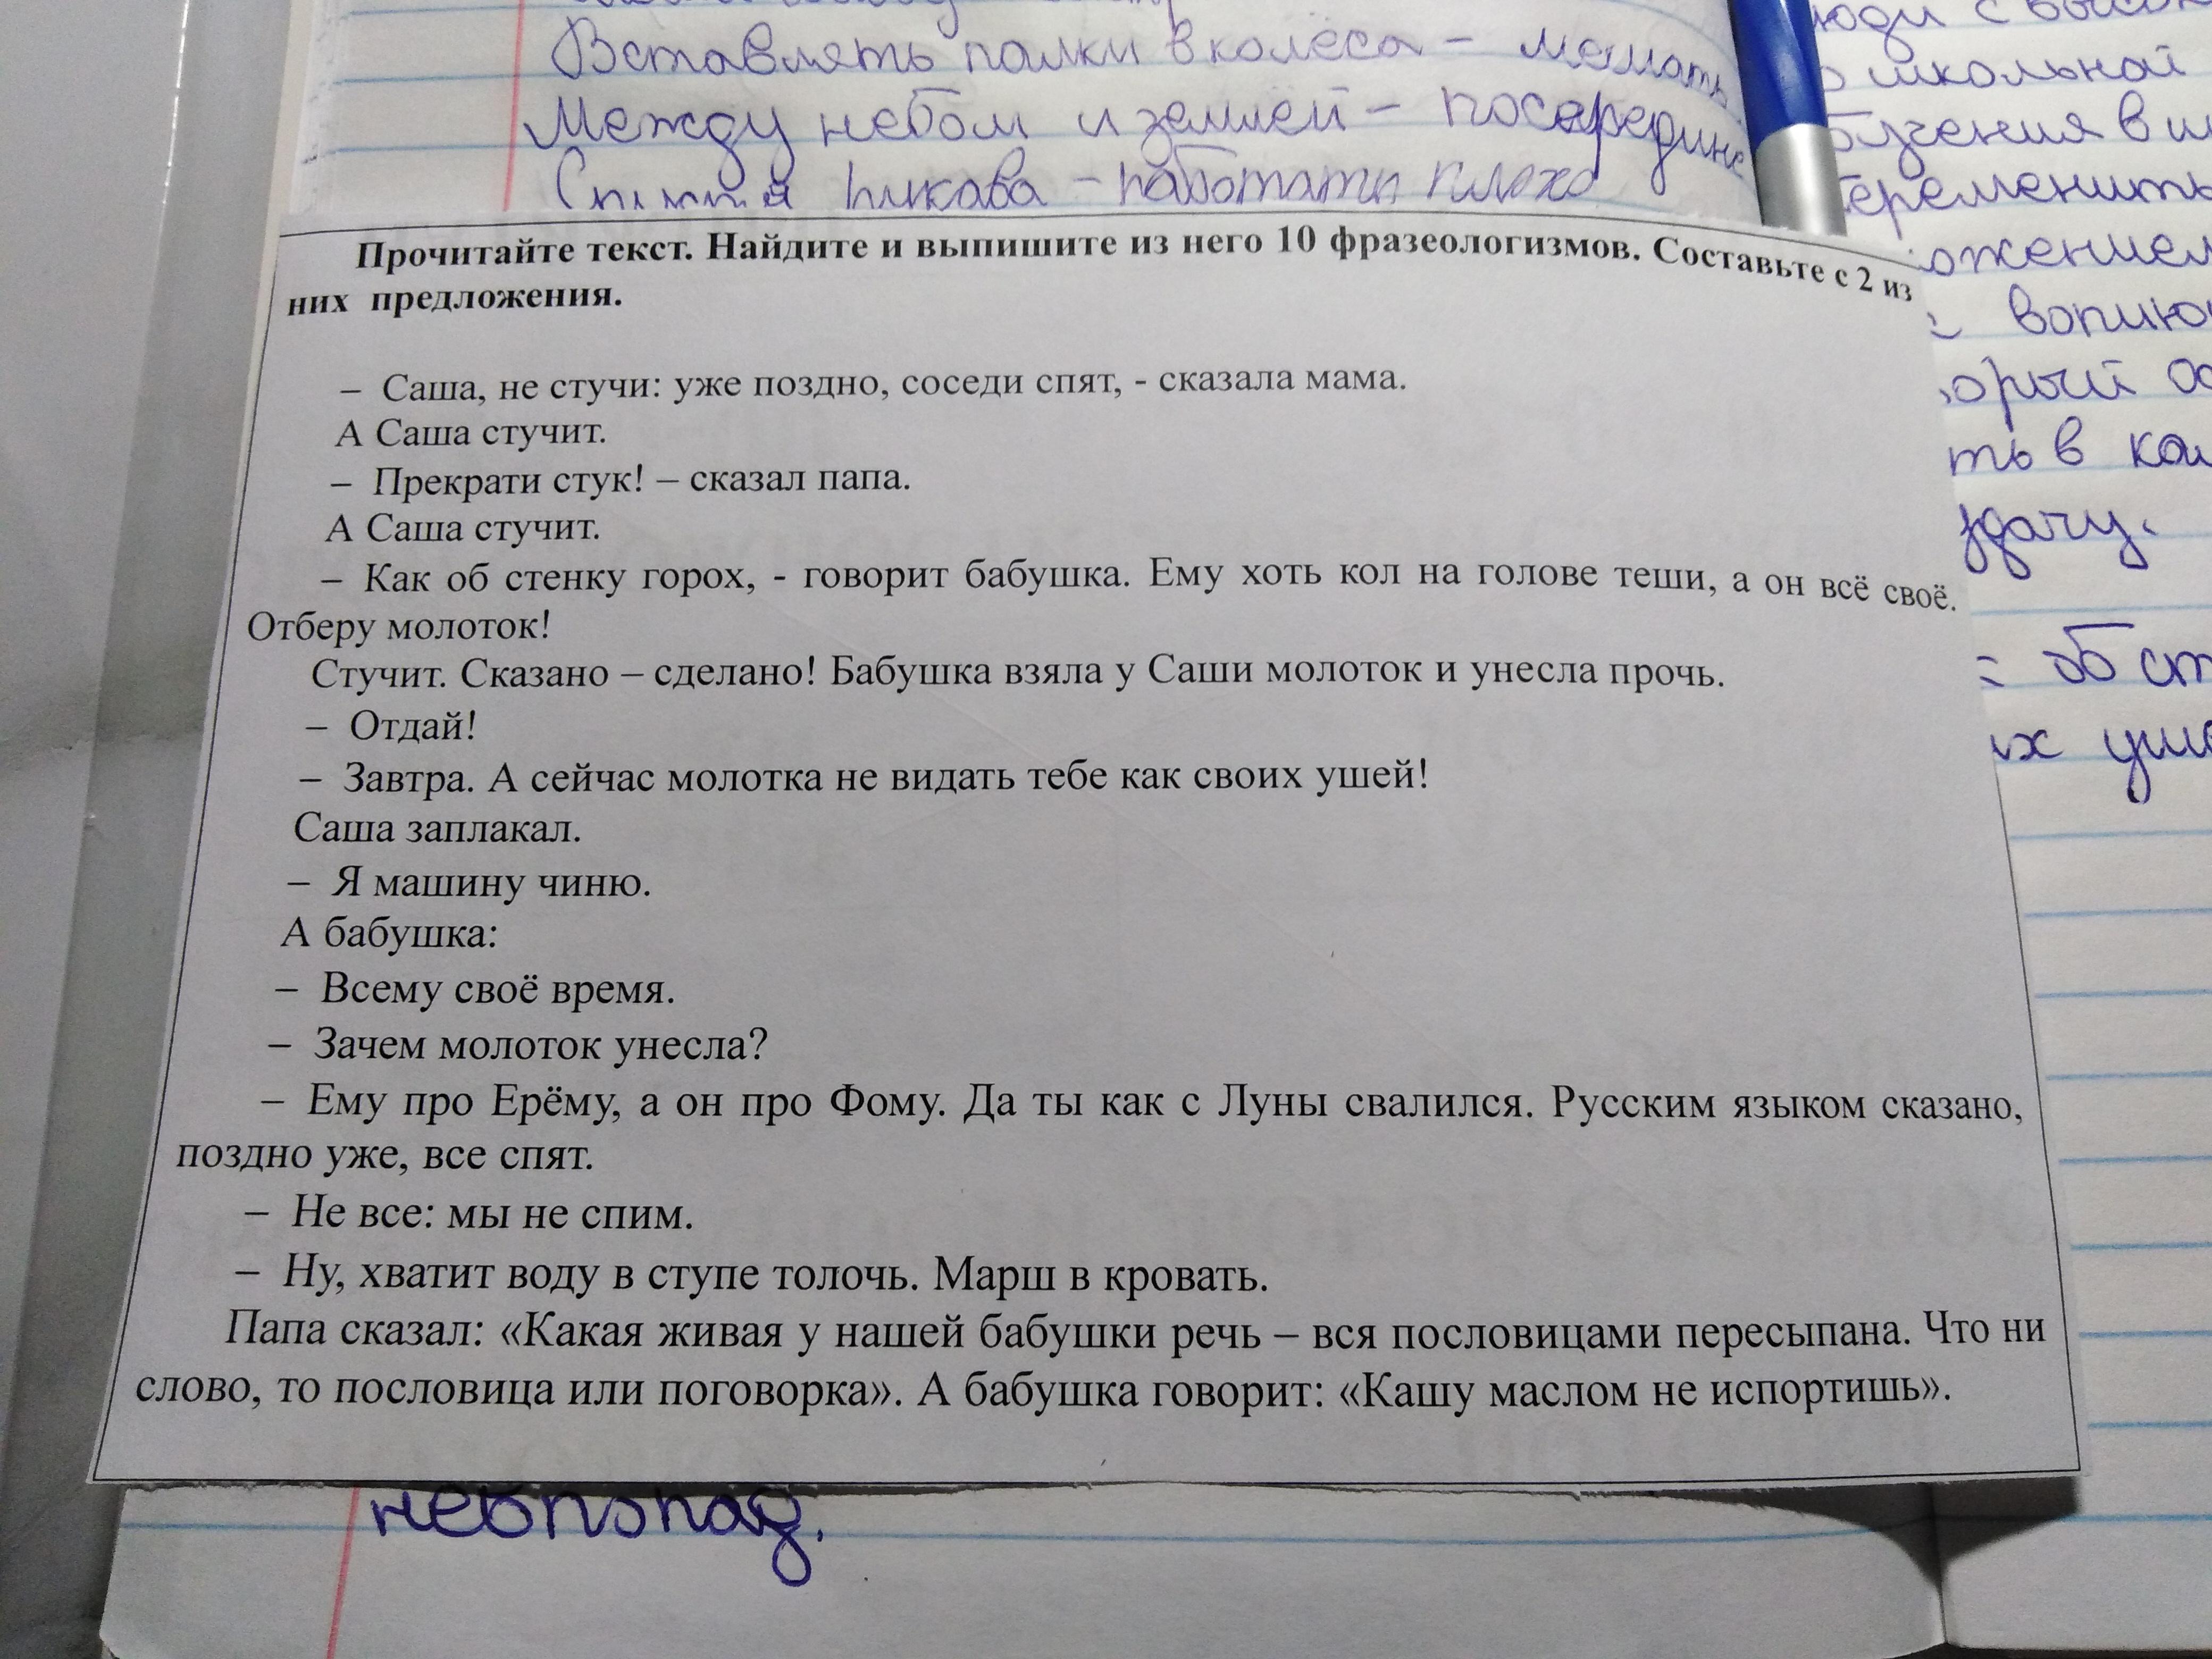 Вставлять палки в колёса – мешать
Между небом и землёй – посередине
рукава – работать плохо
школьной
Прочитайте текст. Найдите и выпишите из него 10 фразеологизмов. Составьте с 2 из
них предложения.
– Саша, не стучи: уже поздно, соседи спят, - сказала мама.
А Саша стучит.
– Прекрати стук! – сказал папа.
А Саша стучит.
– Как об стенку горох, - говорит бабушка. Ему хоть кол на голове теши, а он всё своё.
Отберу молоток!
Стучит. Сказано – сделано! Бабушка взяла у Саши молоток и унесла прочь.
– Отдай!
– Завтра. А сейчас молотка не видать тебе как своих ушей!
Саша заплакал.
– Я машину чиню.
А бабушка:
– Всему своё время.
– Зачем молоток унесла?
– Ему про Ерёму, а он про Фому. Да ты как с Луны свалился. Русским языком сказано,
поздно уже, все спят.
– Не все: мы не спим.
– Ну, хватит воду в ступе толочь. Марш в кровать.
Папа сказал: «Какая живая у нашей бабушки речь – вся пословицами пересыпана. Что ни
слово, то пословица или поговорка». А бабушка говорит: «Кашу маслом не испортишь».
невпопад.